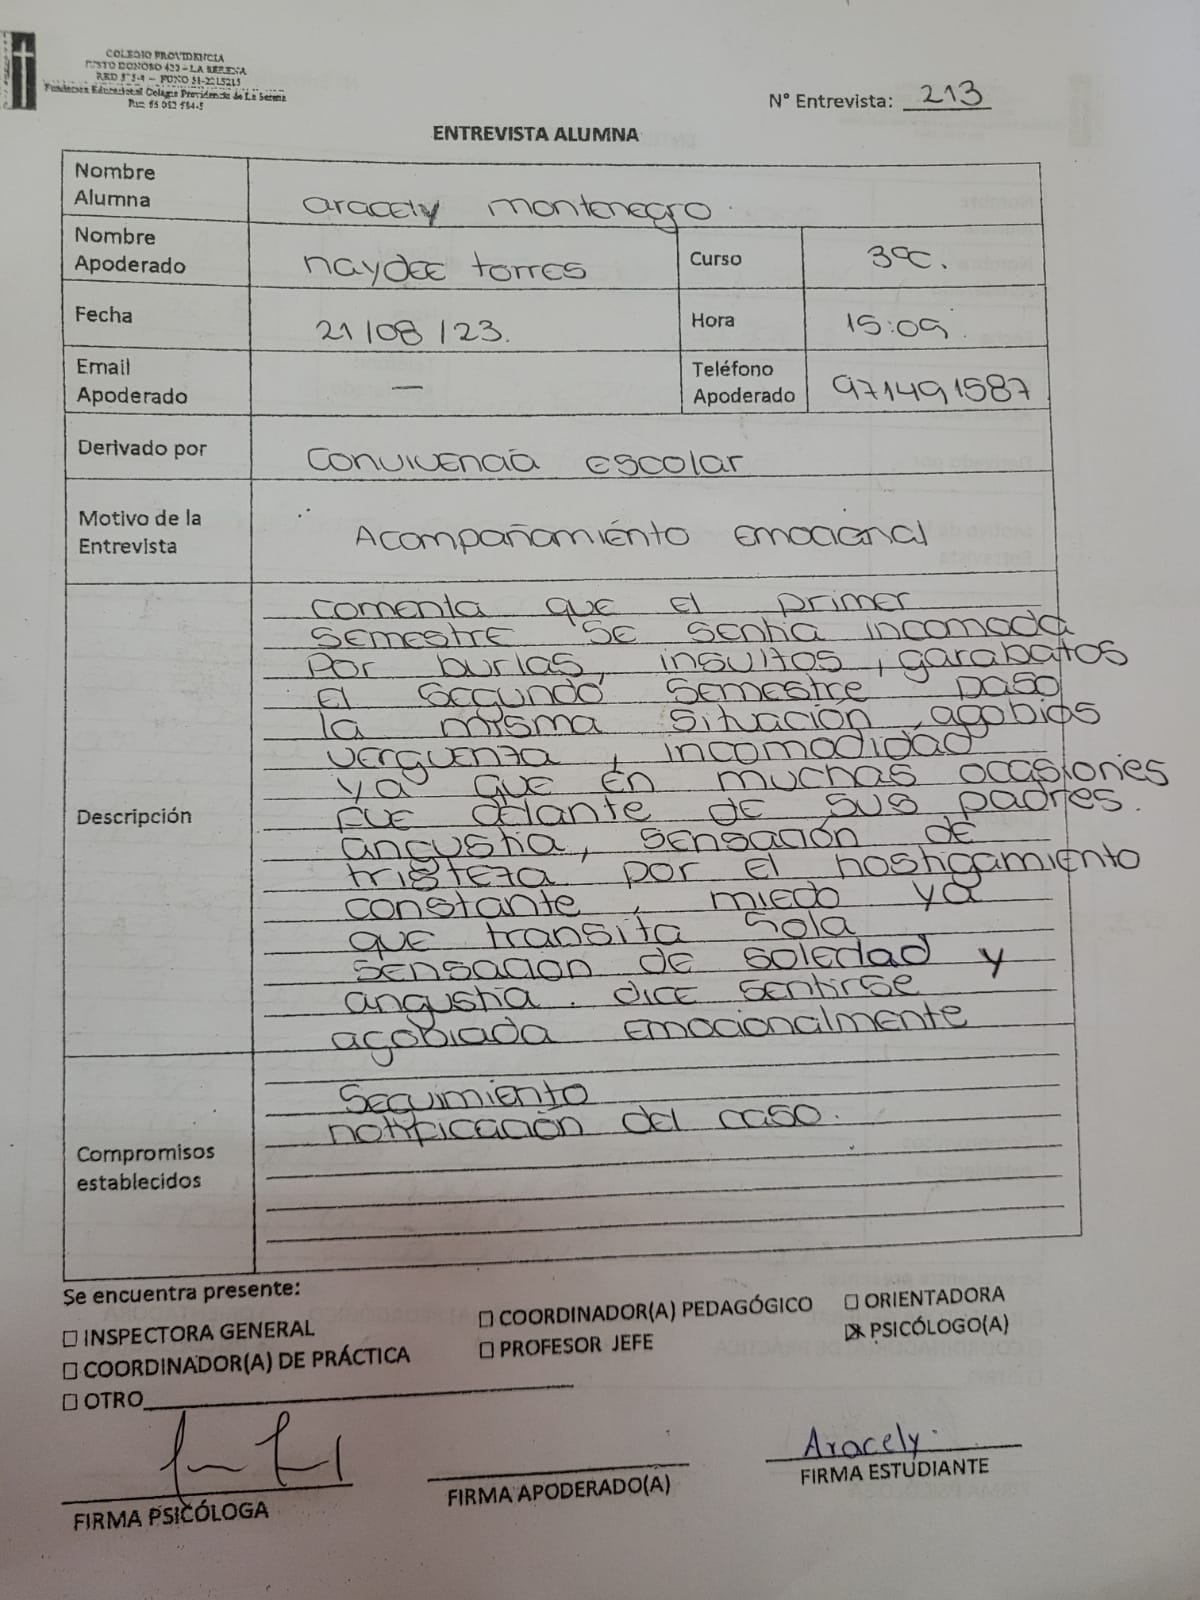 COLEGIO PROVIDENCIA
JUSTO DONOSO 420 – LA SERENA
Fundacion Educacional Colegio Providencia de La Serena
N° Entrevista: 213
ENTREVISTA ALUMNA
Nombre Alumna aracely montenegro
Nombre Apoderado naydee torres Curso 3°C.
Fecha 21/08/23. Hora 15:09
Email Apoderado — Teléfono Apoderado 971491587
Derivado por convivencia escolar
Motivo de la Entrevista Acompañamiento emocional
Descripción
comenta que el primer
semestre se sentia incomoda
por burlas, insultos, garabatos
el segundo semestre paso
la misma situación, agobios
verguenza, incomodidad
ya que en muchas ocasiones
fue delante de sus padres.
angustia, sensación de
tristeza por el hostigamiento
constante, miedo ya
que transita sola
sensacion de soledad y
angustia. dice sentirse
agobiada emocionalmente
Compromisos establecidos
Seguimiento
notificación del caso.
Se encuentra presente:
☐ INSPECTORA GENERAL ☐ COORDINADOR(A) PEDAGÓGICO ☐ ORIENTADORA
☐ COORDINADOR(A) DE PRÁCTICA ☐ PROFESOR JEFE ☒ PSICÓLOGO(A)
☐ OTRO
Aracely.
FIRMA PSICÓLOGA FIRMA APODERADO(A) FIRMA ESTUDIANTE